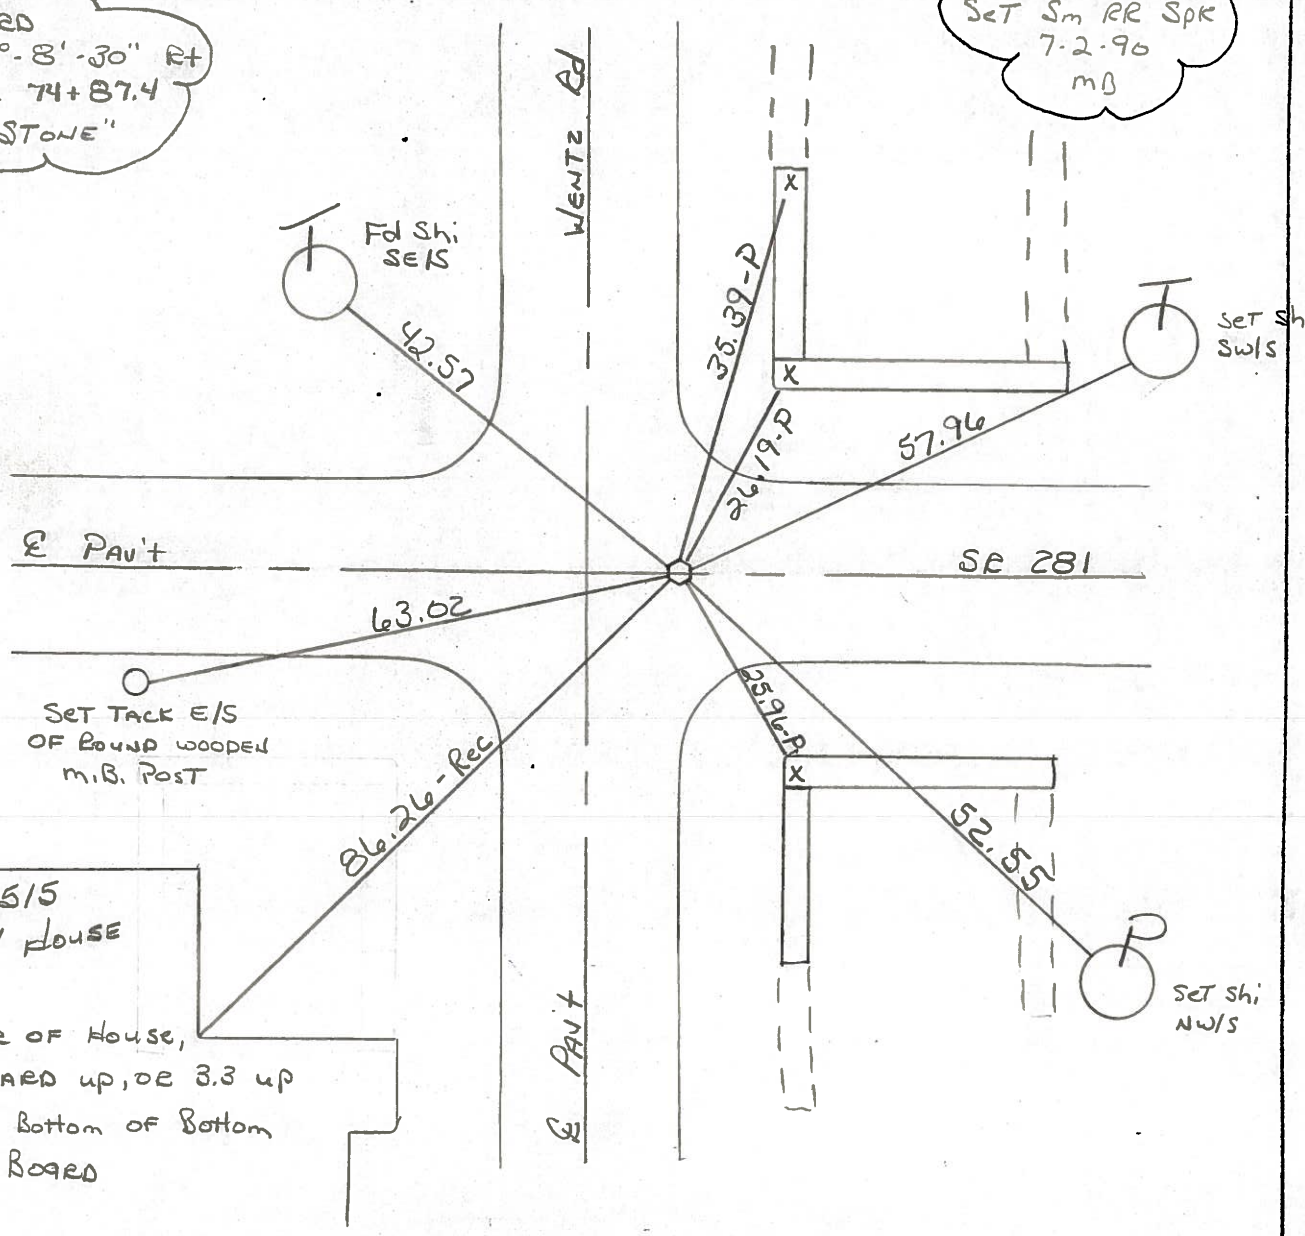 RD
°-8'-30" Rt
74+87.4
STONE"
SeT Sm RR Spk
7-2-90
mB
WENTZ Rd
Fd Shi
SE/S
42.57
35.39-P
X
X
26.19-P
57.96
SeT Sh
SW/S
℄ PAV't
SR 281
63.02
SeT TACK E/S
OF ROUND WOODEN
M.B. POST
86.26-Rec
25.96-P
X
52.55
SeT Shi
NW/S
℄ PAV't
S/S
House
OF House,
ARD up, OR 3.3 up
Bottom OF Bottom
BOARD